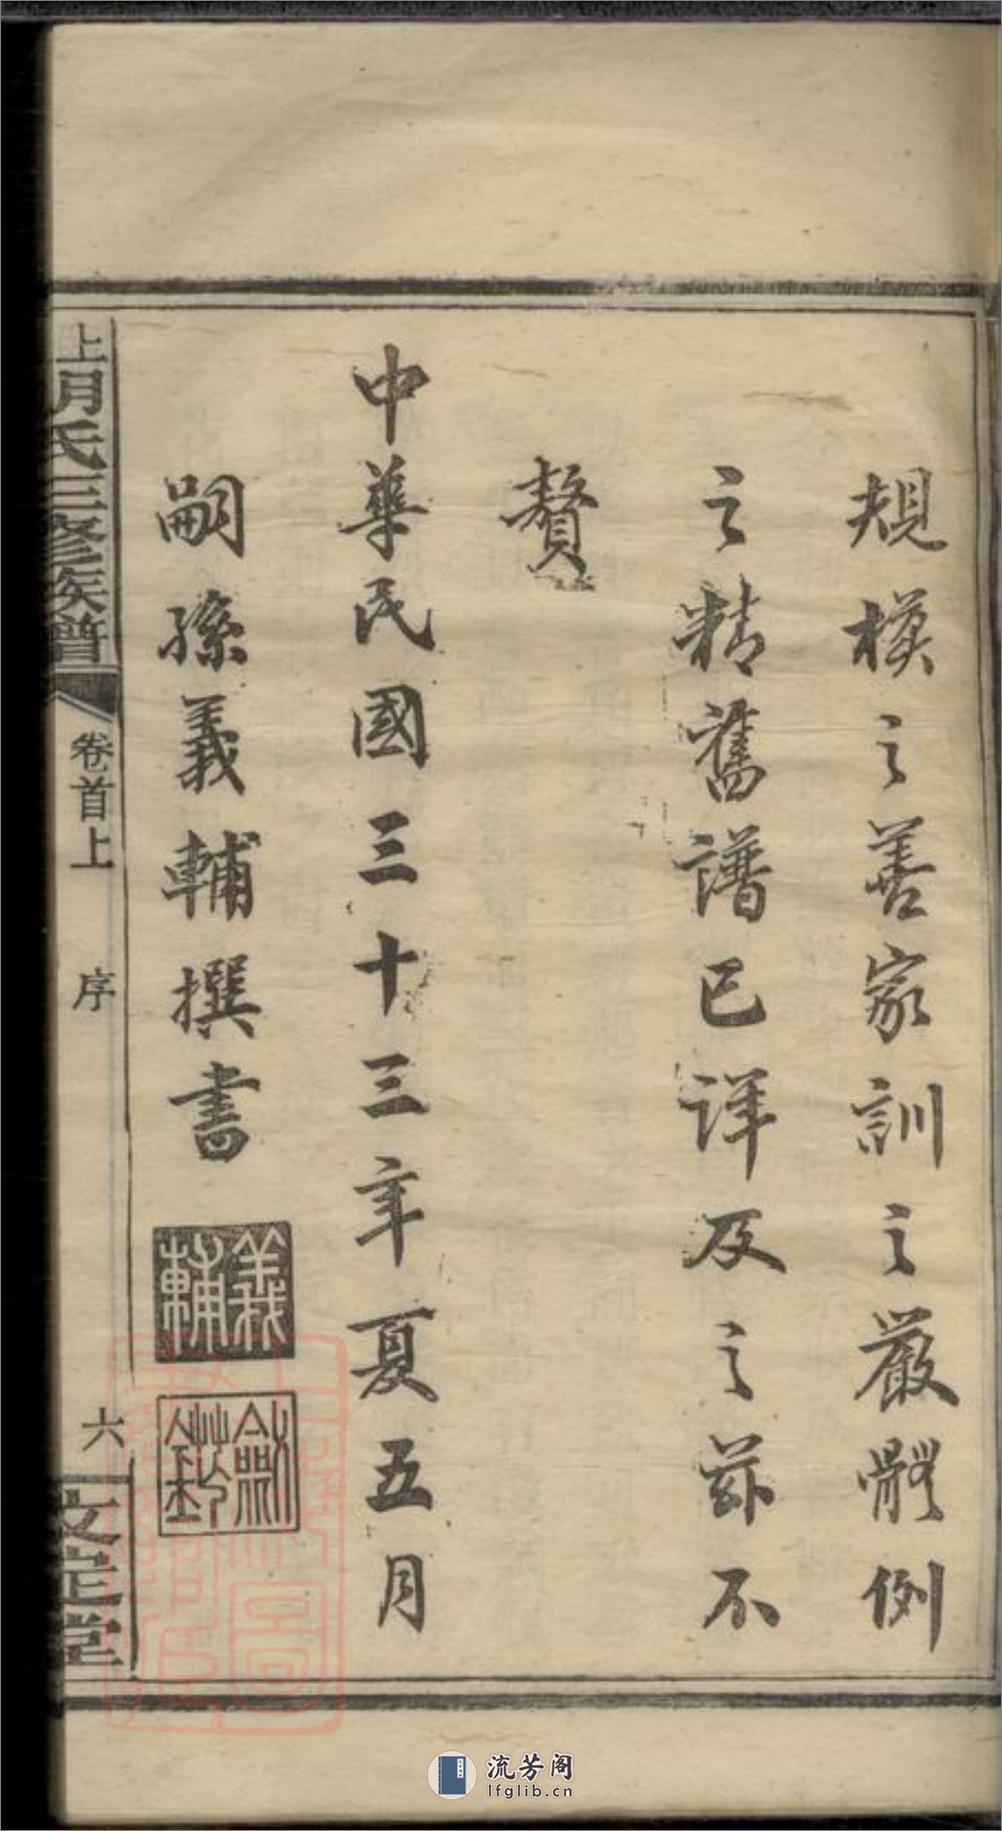 規模之善家訓之嚴體例
之精舊譜已詳及之茲不
贅
中華民國三十三年夏五月
嗣孫義輔撰書
義輔
上胡氏三修族譜
卷首上
序
六
文定堂
流芳阁
lfglib.cn